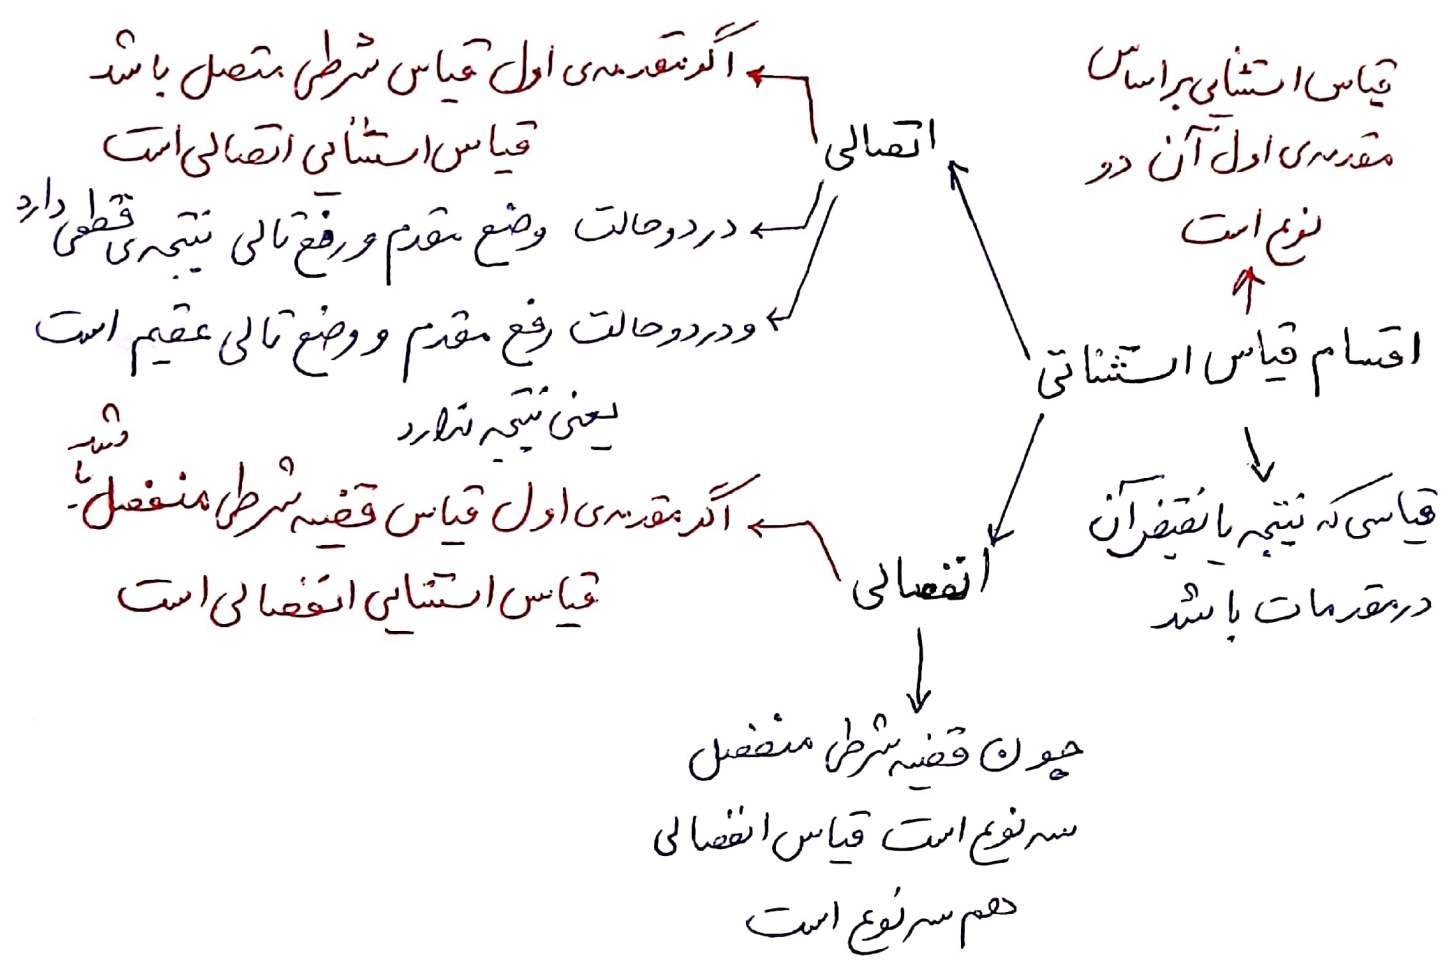 قیاس استثنایی بر اساس
مقدمه‌ی اول آن دو
نوع است
اقسام قیاس استثنائی
قیاسی که نتیجه یا نقیض آن
در مقدمات باشد
اتصالی
اگر مقدمه‌ی اول قیاس شرطی متصل باشد
قیاس استثنایی اتصالی است
در دو حالت وضع مقدم و رفع تالی نتیجه‌ی قطعی دارد
و در دو حالت رفع مقدم و وضع تالی عقیم است
یعنی نتیجه ندارد
انفصالی
اگر مقدمه‌ی اول قیاس قضیه شرطی منفصل باشد
قیاس استثنایی انفصالی است
چون قضیه شرطی منفصل
سه نوع است قیاس انفصالی
هم سه نوع است